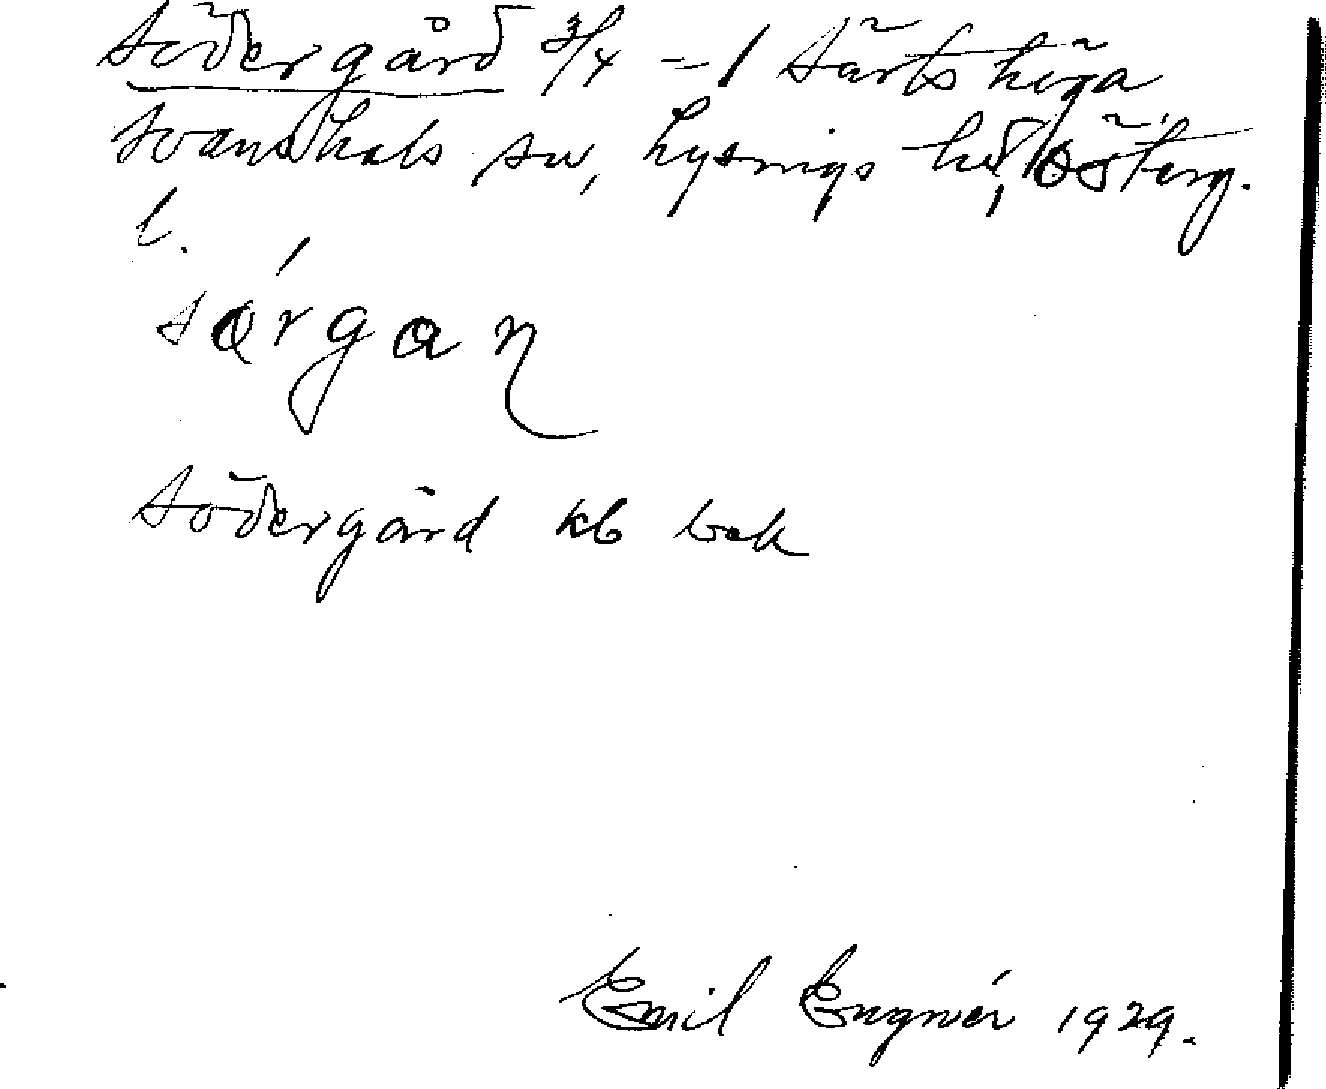 Södergård 3/4 = 1 Särtshöga
Svanshals sn, Lysings hd, Österg.
l.
Södergård kb bek
Emil Engnér 1929.